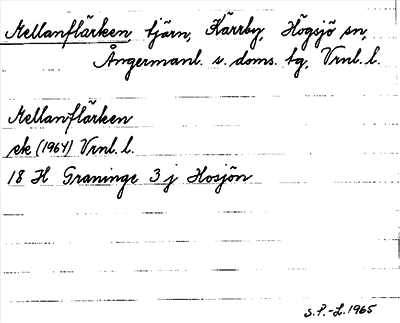 Mellanflärken, tjärn, Kärrby, Högsjö sn,
Ångermanl. s. doms. tg, Vrnl. l.
Mellanflärken
ek (1964) Vrnl. l.
18 H Graninge 3 j Hosjön
S.P.-L. 1965